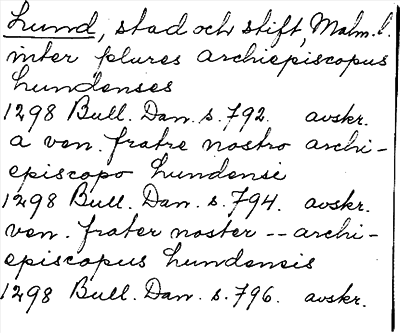 Lund, stad och stift, Malm. l.
inter plures archiepiscopus
lundenses
1298 Bull. Dan. s. 792. avskr.
a ven. fratre nostro archi-
episcopo lundensi
1298 Bull. Dan. s. 794. avskr.
ven. frater noster -- archi-
episcopus lundensis
1298 Bull. Dan. s. 796. avskr.